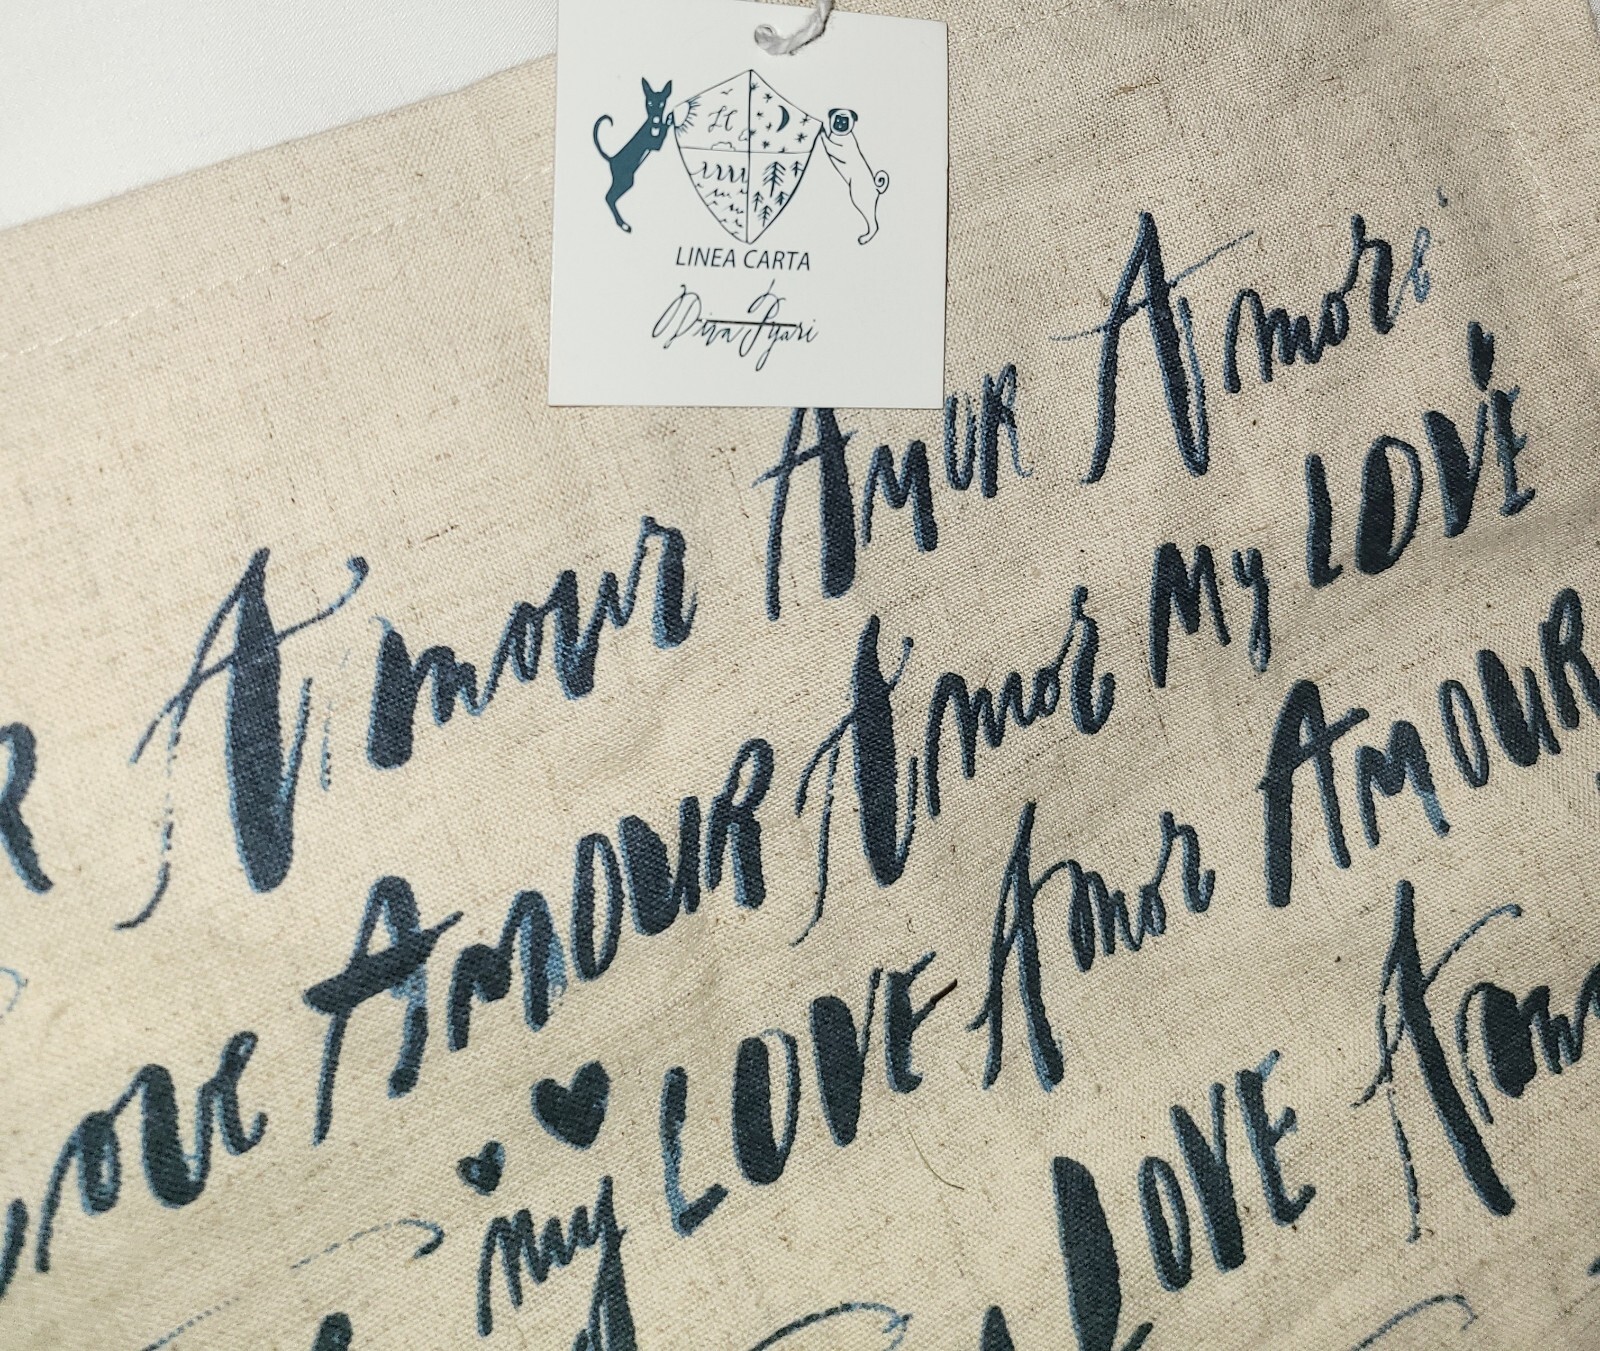 LC
LINEA CARTA
Diva Pyari
Amour Amur Amore
Love AMOUR Amor My LOVE
my LOVE Amor AMOUR
LOVE